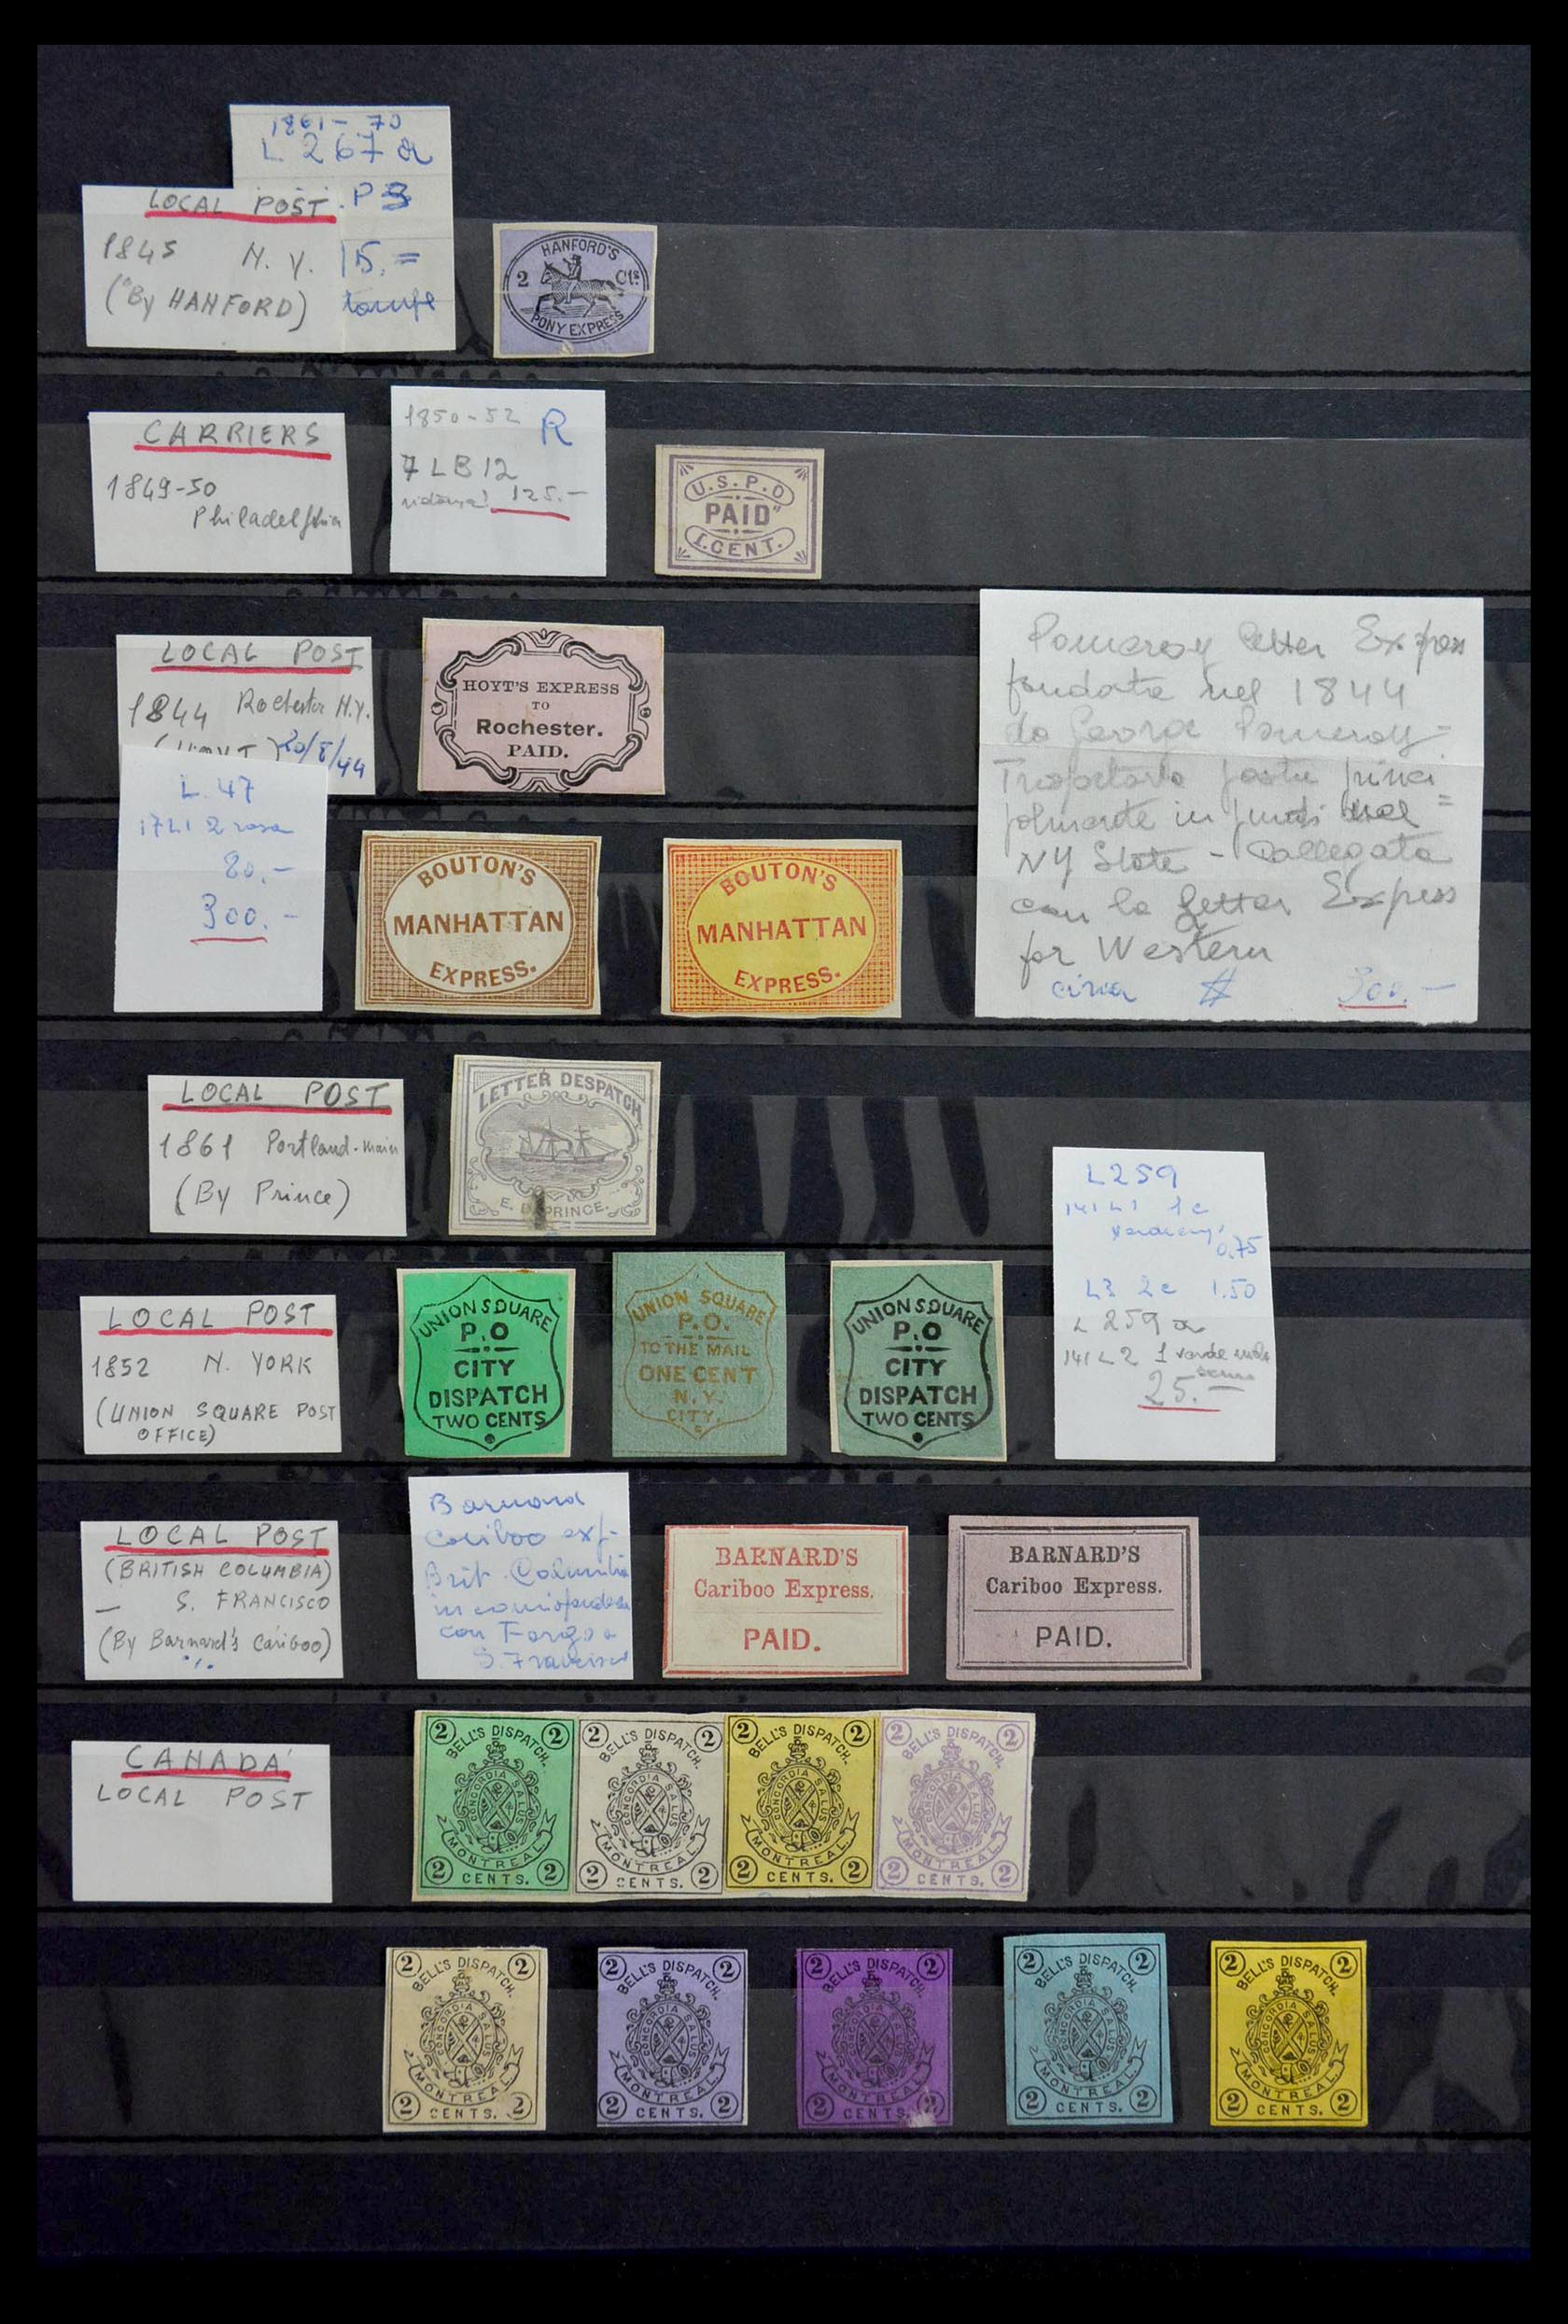 1861-70
L 267 a
LOCAL POST. P3
1845 N.Y. 15.=
("By HANFORD)
HANFORD'S
2 Cts
PONY EXPRESS
CARRIERS
1849-50
Philadelphia
1850-52 R
7 LB 12
125.-
U.S.P.O
PAID"
1.CENT.
LOCAL POST
1844 Rochester N.Y.
20/8/44
L. 47
17L1 2 rosa
80.-
300.-
HOYT'S EXPRESS
TO
Rochester.
PAID.
BOUTON'S
MANHATTAN
EXPRESS.
BOUTON'S
MANHATTAN
EXPRESS.
Pomeroy letter Expres
fondata nel 1844
da George Pomeroy =
nel =
NY State - Collegata
con la Letter Express
for Western
circa # 300.-
LOCAL POST
1861 Portland-Main
(By Prince)
LETTER DESPATCH
E. D. PRINCE.
LOCAL POST
1852 N. YORK
(UNION SQUARE POST
OFFICE)
UNION SQUARE
P.O
CITY
DISPATCH
TWO CENTS
UNION SQUARE
P.O.
TO THE MAIL
ONE CENT
N.Y.
CITY.
UNION SQUARE
P.O
CITY
DISPATCH
TWO CENTS
L259
141 L1 1c
0.75
L3 2c 1.50
L 259 a
141 L 2 1 verde
25.-
LOCAL POST
(BRITISH COLUMBIA)
— S. FRANCISCO
(By Barnard's Cariboo)
Barnard
Cariboo exp.
Brit. Columbia
con Fargo a
S. Francisco
BARNARD'S
Cariboo Express.
PAID.
BARNARD'S
Cariboo Express.
PAID.
CANADA
LOCAL POST
2 BELL'S DISPATCH. 2
CONCORDIA SALUS
MONTREAL.
2 CENTS. 2
2 BELL'S DISPATCH. 2
CONCORDIA SALUS
MONTREAL.
2 CENTS. 2
2 BELL'S DISPATCH. 2
CONCORDIA SALUS
MONTREAL.
2 CENTS. 2
2 BELL'S DISPATCH. 2
CONCORDIA SALUS
MONTREAL.
2 CENTS. 2
2 BELL'S DISPATCH. 2
CONCORDIA SALUS
MONTREAL.
2 CENTS. 2
2 BELL'S DISPATCH. 2
CONCORDIA SALUS
MONTREAL.
2 CENTS. 2
2 BELL'S DISPATCH. 2
CONCORDIA SALUS
MONTREAL.
2 CENTS. 2
2 BELL'S DISPATCH. 2
CONCORDIA SALUS
MONTREAL.
2 CENTS. 2
2 BELL'S DISPATCH. 2
CONCORDIA SALUS
MONTREAL.
2 CENTS. 2